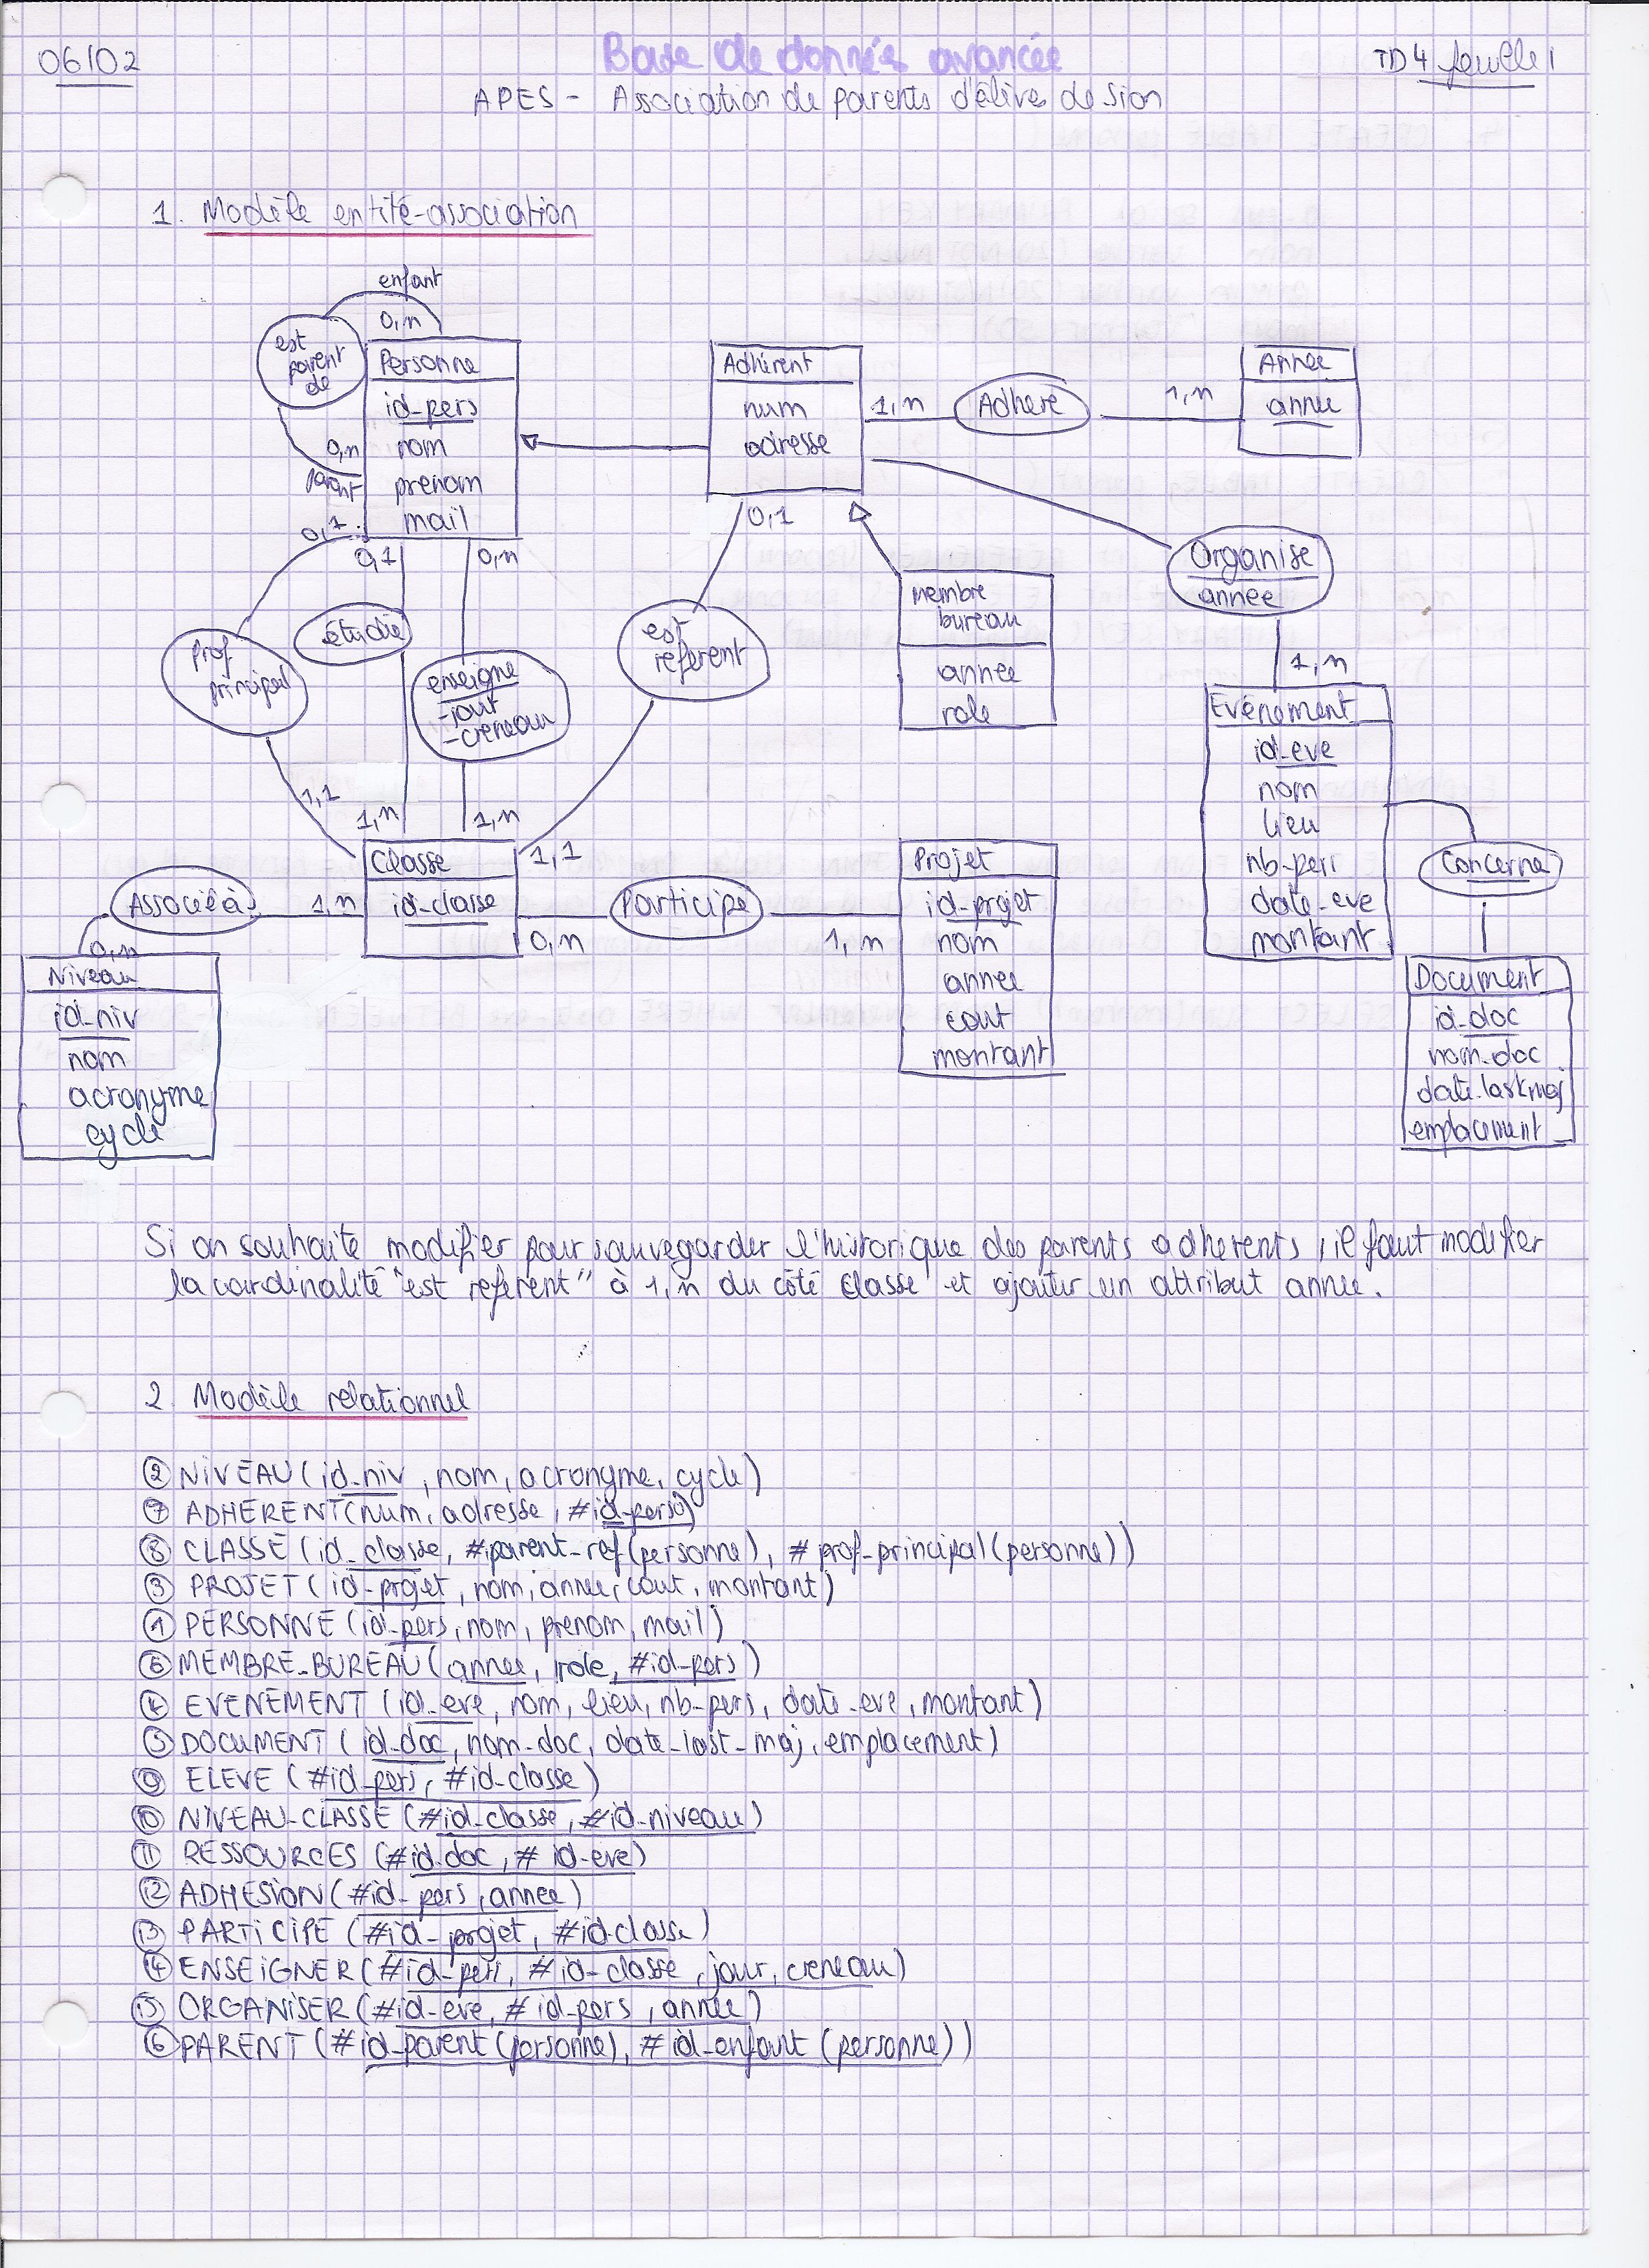 06/02
Base de donnée avancée
TD4 feuille 1
APES - Association de parents d'élèves de Sion
1. Modèle entité-association
enfant
0,n
est parent de
0,n
parent
Personne
id-pers
nom
prenom
mail
Adhérent
num
adresse
1,n
Adhere
1,n
Année
annee
0,1
0,1
0,n
0,1
prof principal
étudie
enseigne
-jour
-creneau
est referent
membre bureau
annee
role
Organise
annee
1,n
Evénement
id-eve
nom
lieu
nb-pers
date-eve
montant
1,1
1,n
1,n
1,1
Classe
id-classe
Associé à
1,n
0,n
Participe
0,n
1,n
Projet
id-projet
nom
annee
cout
montant
Concerne
Niveau
id-niv
nom
acronyme
cycle
Document
id-doc
nom-doc
date-lastmaj
emplacement
Si on souhaite modifier pour sauvegarder l'historique des parents adherents, il faut modifier
la cardinalité "est referent" à 1,n du côté classe et ajouter un attribut annee.
2. Modèle relationnel
② NIVEAU (id-niv, nom, acronyme, cycle)
⑦ ADHERENT (num, adresse, #id-pers)
⑧ CLASSE (id-classe, #parent-ref(personne), #prof-principal(personne))
③ PROJET (id-projet, nom, annee, cout, montant)
① PERSONNE (id-pers, nom, prenom, mail)
⑥ MEMBRE-BUREAU (annee, role, #id-pers)
④ EVENEMENT (id-eve, nom, lieu, nb-pers, date-eve, montant)
⑤ DOCUMENT (id-doc, nom-doc, date-last-maj, emplacement)
⑨ ELEVE (#id-pers, #id-classe)
⑩ NIVEAU-CLASSE (#id-classe, #id-niveau)
⑪ RESSOURCES (#id-doc, #id-eve)
⑫ ADHESION (#id-pers, annee)
⑬ PARTICIPE (#id-projet, #id-classe)
⑭ ENSEIGNER (#id-pers, #id-classe, jour, creneau)
⑮ ORGANISER (#id-eve, #id-pers, année)
⑥ PARENT (#id-parent(personne), #id-enfant (personne))